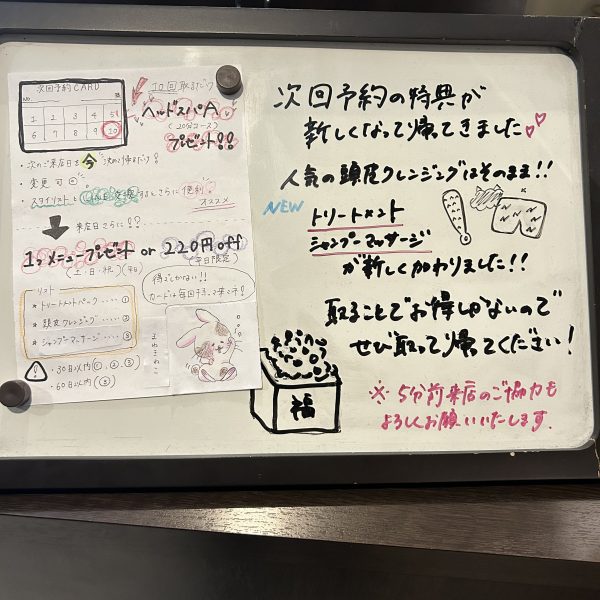 次回予約CARD
No.
1 2 3 4 5
6 7 8 9 10
10回
ヘルドスパA
(20分コース)
プレゼント!!
・次のご来店日を今決めて帰るだけ!
・変更可
・スタイリスト
さらに便利
オススメ
来店日さらに!?
1.メニュープレゼント or 220円off
(土・日・祝)(平日)
(平日限定)
リスト
★トリートメントパーク‥‥①
★頭皮クレンジング‥‥②
★シャンプーマッサージ‥‥③
得しかない!!
・30日以内(①、②、③)
・60日以内(③)
次回予約の特典が
新しくなって帰てきました
人気の頭皮クレンジングはそのまま!!
NEW
トリートメント
シャンプーマッサージ
が新しく加わりました!!
取ることでお得しかないので
ぜひ取って帰てください!
福
※5分前来店のご協力も
よろしくお願いいたします.